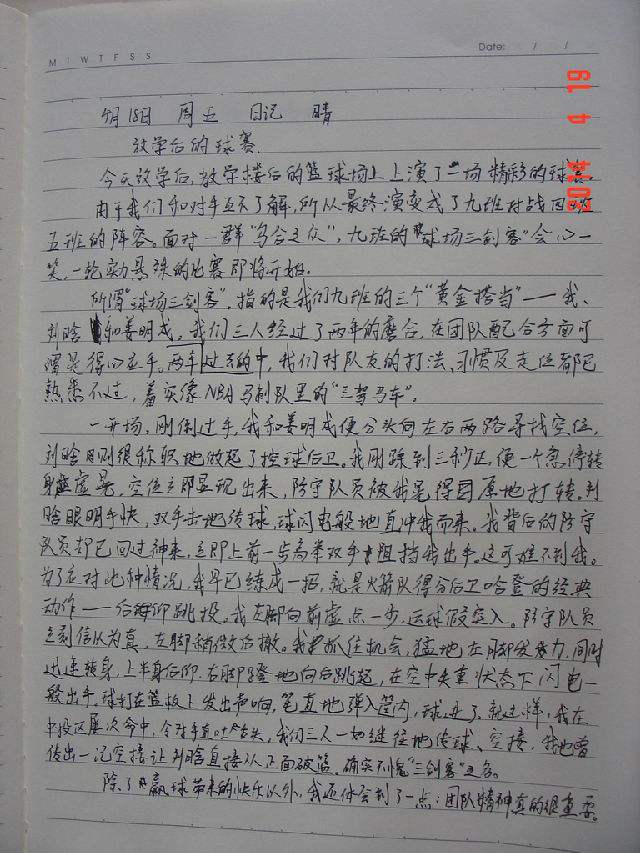 M T W T F S S
Date: / /
2014 4 19
4月18日 周五 日记 晴
放学后的球赛
今天放学后,教学楼后的篮球场上上演了一场精彩的球赛。
由于我们和对手互不了解,所以最终演变成了九班对战
五班的阵容。面对一群“乌合之众”,九班的“球场三剑客”会心一
笑,一轮实力悬殊的比赛即将开始。
所谓“球场三剑客”,指的是我们九班的三个“黄金搭当”——我、
刘晗和姜明成。我们三人经过了两年的磨合,在团队配合方面可
谓是得心应手。两年过去的中,我们对队友的打法、习惯及走位都已
熟悉不过,着实像NBA马刺队里的“三驾马车”。
一开场,刚倒过手,我和姜明成便分头向左右两路寻找空位,
刘晗则很称职地做起了控球后卫。我刚跺到三秒区,便一个急停转
身虚晃,空位立即显现出来,防守队员被我晃得团原地打转。刘
晗眼明手快,双手击地传球,球闪电般地直冲我而来。我背后的防守
队员却已回过神来,立即上前一步高举双手阻挡我出手。这可难不到我。
为了应对此种情况,我早已练成一招,就是火箭队得分后卫哈登的经典
动作——后仰跳投。我左脚向前虚点一步,运球假突入。防守队员
立刻信以为真,左脚稍微后撤。我抓住机会,猛地左脚发力,同时
迅速转身,上半身后仰,右脚蹬地向后跳起,在空中失重状态下闪电一
般出手。球打在篮板上发出声响,笔直地弹入筐内,球进了。就这样,我在
中投区屡次命中,令对手直吐舌头,我们三人一如继往地传球、空接,我也曾
传出一记空接让刘晗直接从正面破篮。确实不愧“三剑客”之名。
除了赢球带来的快乐以外,我还体会到了一点:团队精神真的很重要。